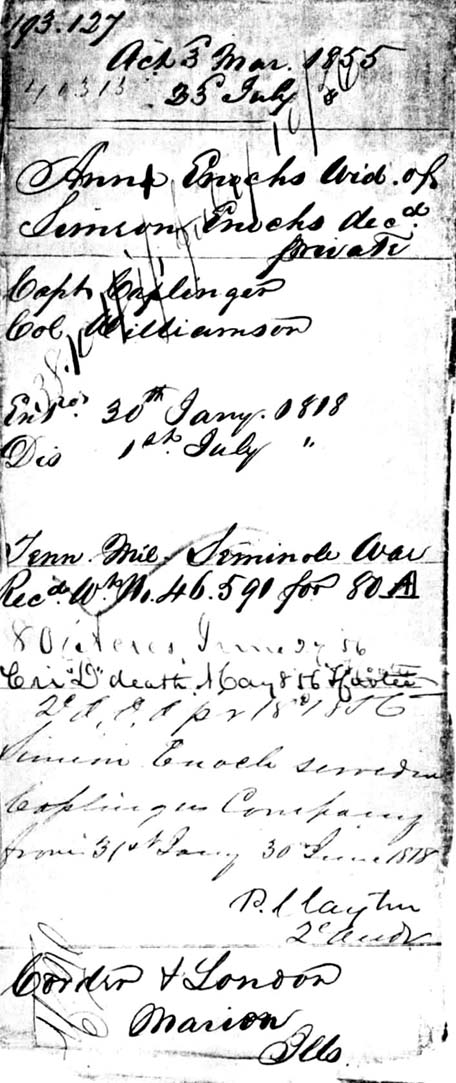 193.127
Act 3 Mar. 1855
23 July
Ann Enochs Wid. of
Simeon Enochs decd.
private
Capt Caplinger
Col Williamson
30th Jany. 1818
Dis 1st July "
Tenn. Mil. Seminole War
Recd. Wt No. 46.591 for 80 A
80 Acres June 27 56
death May 8 56
2d A. O. Apr 18 1856
Simeon Enoch served in
Caplingers Company
from 31st Jany 30 June 1818
P. Clayton
2d Audr
Corder & London
Marion
Ills.